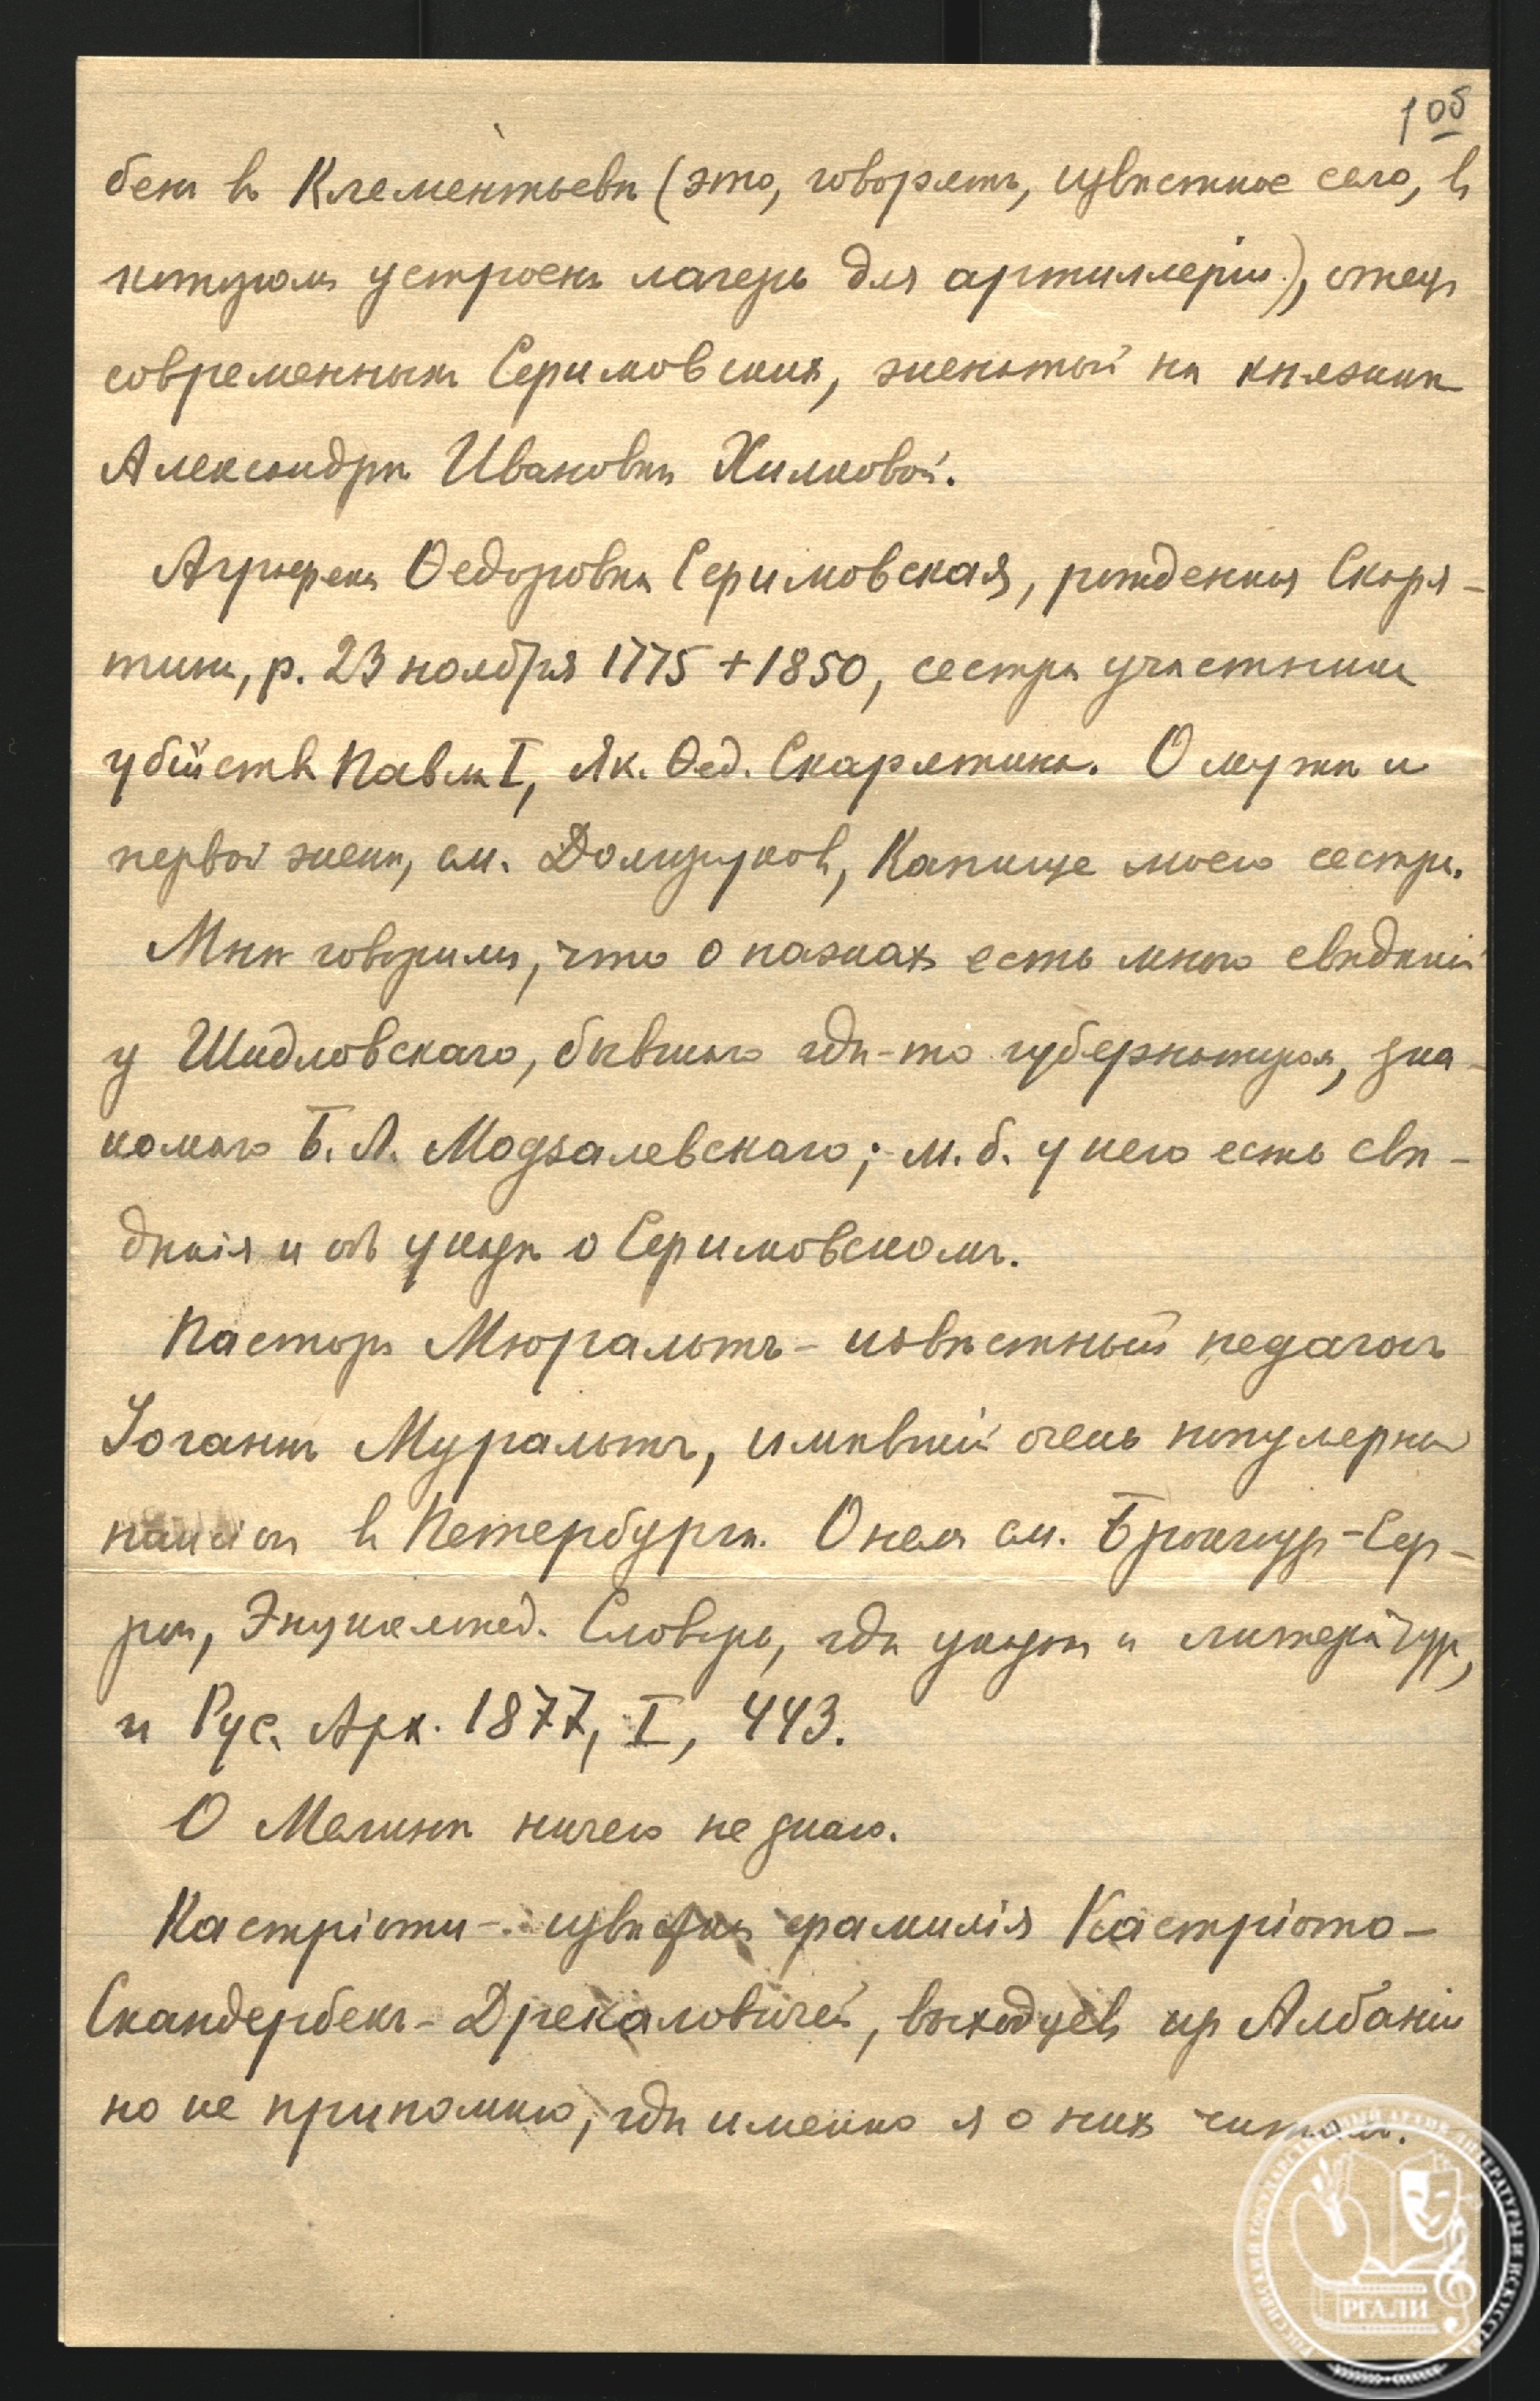 105
бенъ въ Клементьевѣ (это, говорятъ, извѣстное село, въ
которомъ устроенъ лагерь для артиллеріи), отецъ
современныхъ Серимовскихъ, женатый на княжнѣ
Александрѣ Ивановнѣ Хилковой.
Агриппина Ѳедоровна Серимовская, рожденная Скаря-
тина, р. 23 ноября 1775 + 1850, сестра участника
убійства Павла I, Як. Ѳед. Скарятина. О мужѣ и
первой женѣ, см. Долгоруковъ, Капище моего сердца.
Мнѣ говорили, что о пажахъ есть много свѣдѣній
у Шидловскаго, бывшаго гдѣ-то губернаторомъ, зна-
комаго Б. Л. Модзалевскаго; м. б. у него есть свѣ-
дѣнія и о Серимовскомъ.
Пасторъ Мюральтъ – извѣстный педагогъ
Іоганнъ Муральтъ, имѣвшій очень популярный
пансіонъ въ Петербургѣ. О немъ см. Брокгаузъ-Ефр-
онъ, Энциклопед. Словарь, гдѣ указана и литература,
и Рус. Арх. 1877, I, 443.
О Мелинѣ ничего не знаю.
Кастріоти – извѣстная фамилія Кастріото-
Скандербекъ-Дрекаловичей, выходцевъ изъ Албаніи
но не припомню, гдѣ именно я о нихъ читалъ.
РОССИЙСКИЙ ГОСУДАРСТВЕННЫЙ АРХИВ ЛИТЕРАТУРЫ И ИСКУССТВА
РГАЛИ